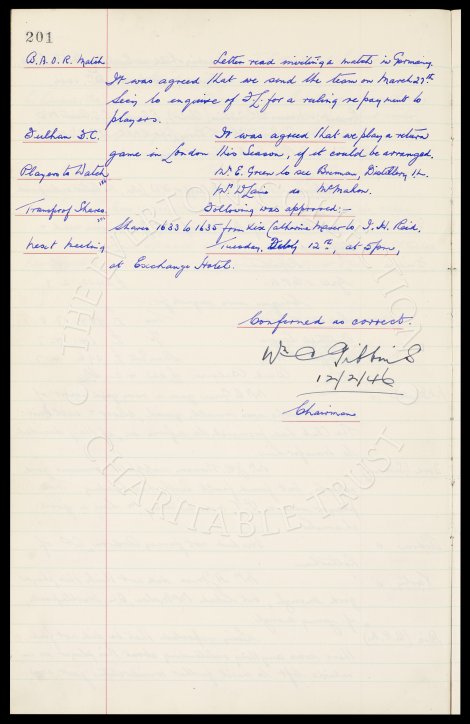 201
B.A.O.R. Match Letter read inviting a match in Germany.
It was agreed that we send the team on March 27th
Secy to enquire of F.L. for a ruling re payment to
players.
Fulham F.C. It was agreed that we play a return
game in London this Season, if it could be arranged.
Players to Watch Mr. E. Green to see Brennan, Distillery I.L.
Mr. do McMahon.
Transfer of Shares Following was approved:-
Shares 1633 to 1635 from Catherine to J. H. Reid.
Next Meeting Tuesday, 12th, at 5pm,
at Exchange Hotel.
Confirmed as correct.
Wm C Gibbins
12/2/46
Chairman
THE EVERTON COLLECTION
CHARITABLE TRUST